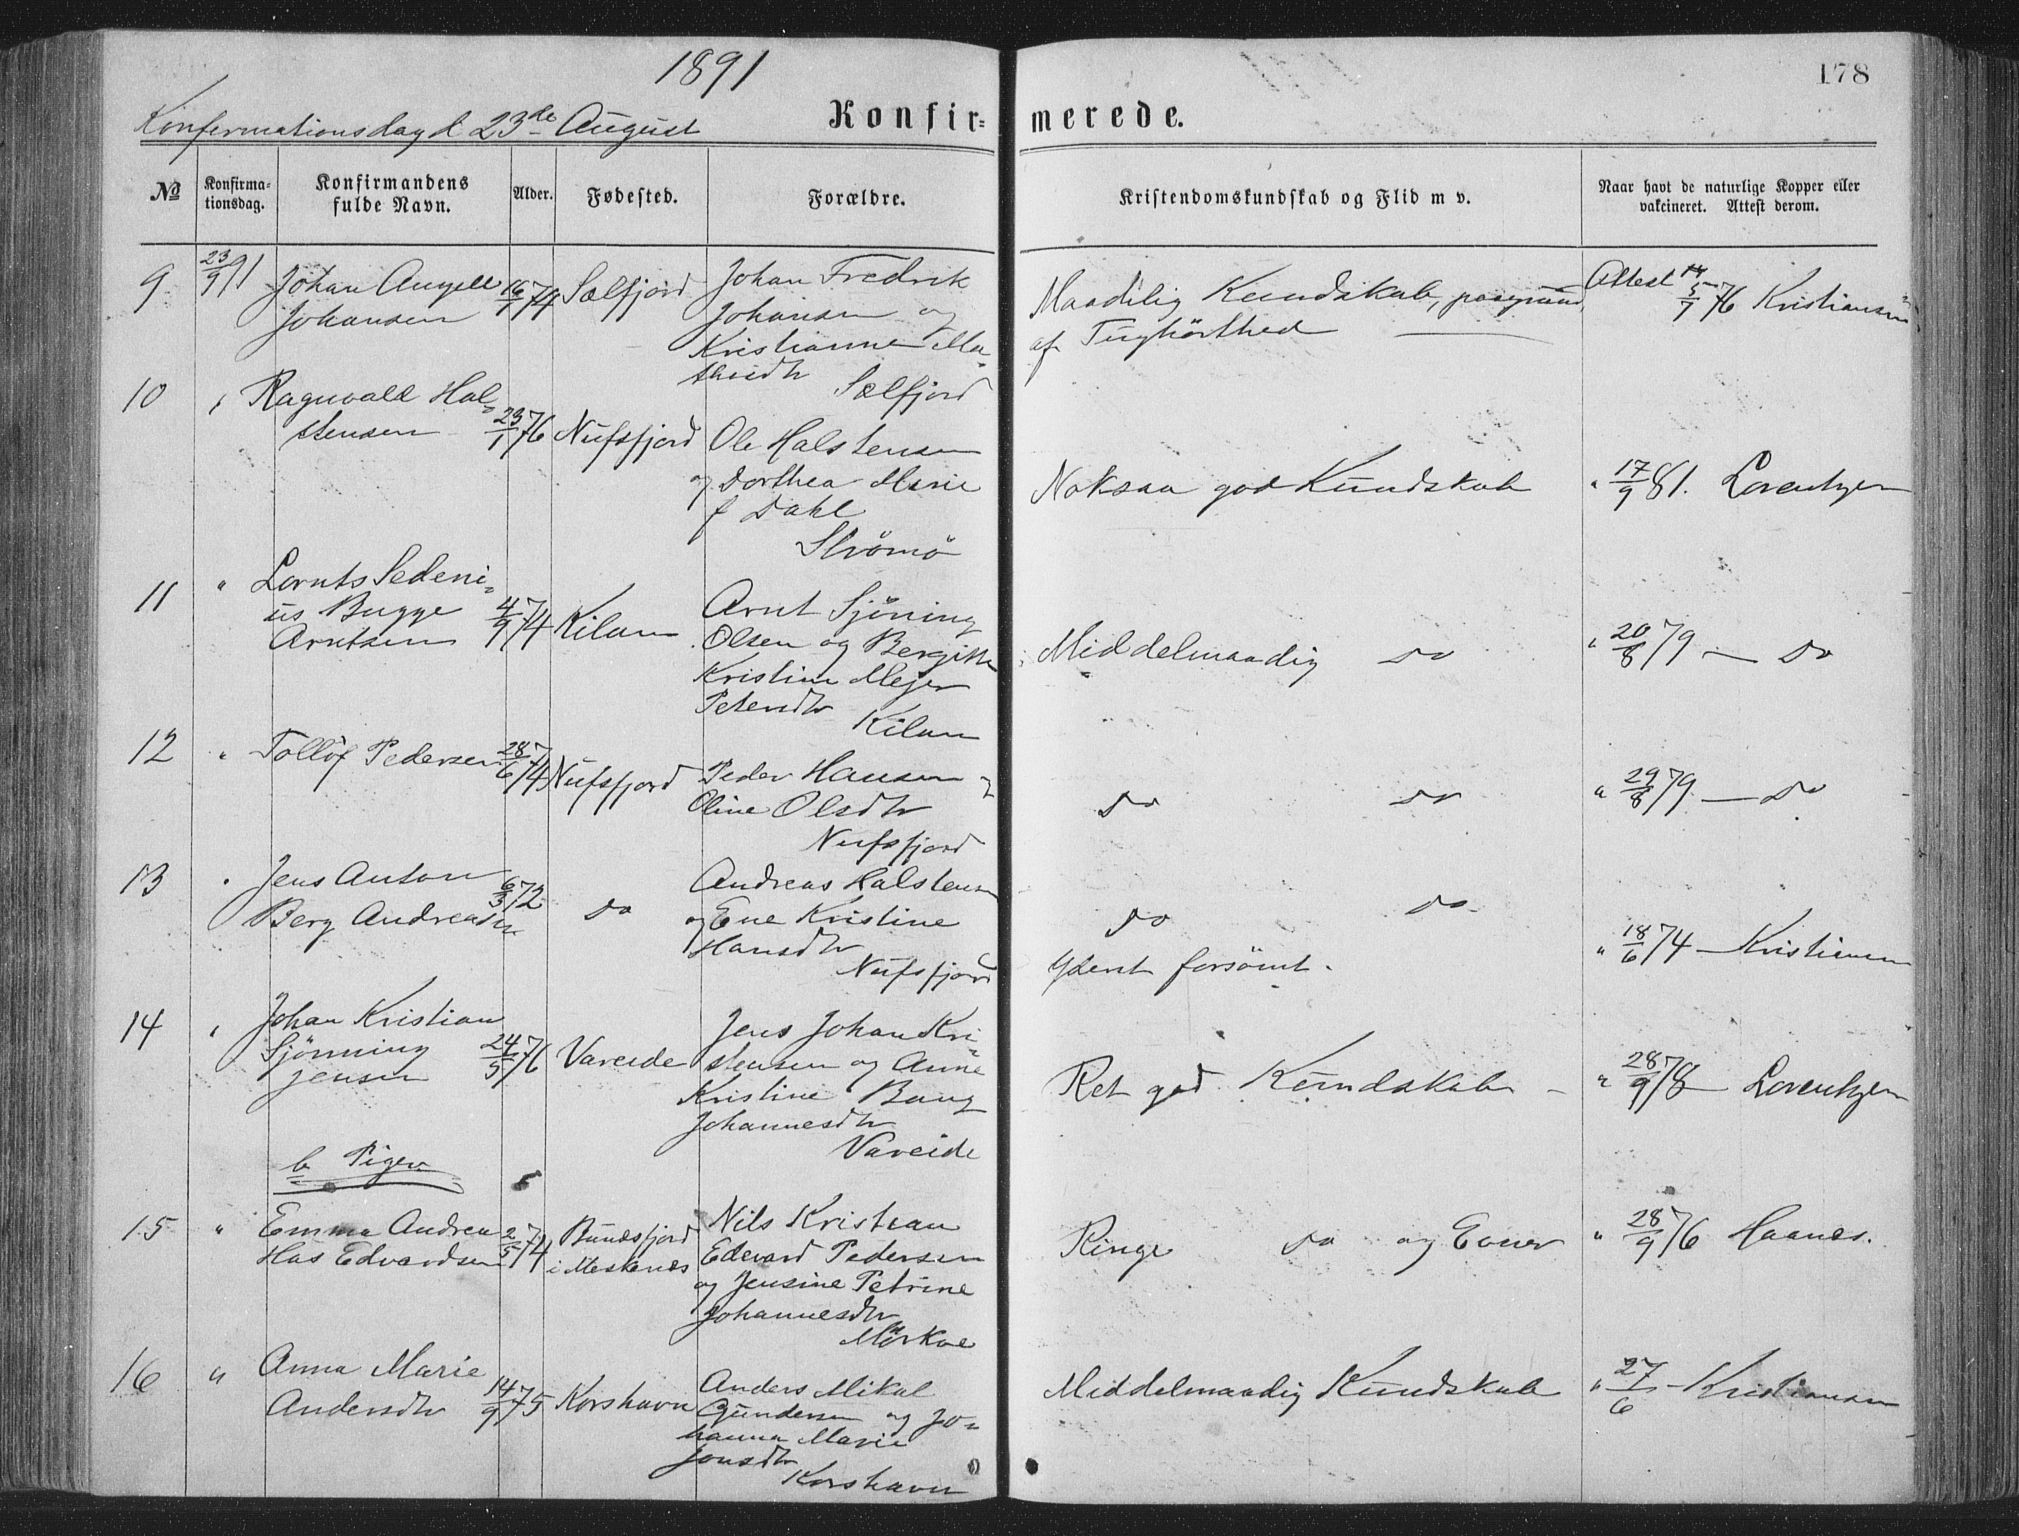 1891
178
Konfirmationsdag d 23de August
Konfir= merede.
№ Konfirma=tionsdag. Konfirmandens fulde Navn. Alder. Fødested. Forældre. Kristendomskundskab og Flid m v. Naar havt de naturlige Kopper eller vakcineret. Attest derom.
9 23/9 91 Johan Angell 16/1 74 Sælfjord Johan Fredrik
Johansen Johansen og
Kristianne Ma=
thisdtr
Sælfjord
Maadelig Kundskab, paagrund
af Tunghørthed
Attest 14/7 76 Kristiansen
10 " Ragnvald Hal= 23/1 76 Nufsfjord Ole Halstensen
stensen og Dorthea Marie
f Dahl
Strömö
Noksaa god Kundskab " 17/9 81. Lorentzen
11 " Lornts Sedeni=
us Bugge 4/9 74 Kilan Arnt Sjöning
Arntsen Olsen og Bergitte
Kristine Mejer
Petersdtr
Kilan
Middelmaadig do " 20/8 79 — do
12 " Tollöf Pedersen 28/6 74 Nufsfjord Peder Hansen og
Oline Olsdtr
Nufsfjord
do do " 29/8 79 — do
13 " Jens Anton 6/3 72 do Andreas Halstensen
Berg Andreasen og Ene Kristine
Hansdtr
Nufsfjord
do do
yderst forsömt. " 18/6 74 — Kristiansen
14 " Johan Kristian
Sjönning 24/5 76 Vareide Jens Johan Kri=
Jensen stensen og Anne
Kristine Bang
Johannesdtr
Vareide
Ret god Kundskab — " 28/9 78 — Lorentzen
b Piger
15 " Emma Andrea 2/5 74 Bundsfjord Nils Kristian
Has Edvardsen i Moskenes Edevard Pedersen
og Jensine Petrine
Johannesdtr
Mörkve
Ringe do og Evner " 28/9 76 Haanes.
16 " Anna Marie
Andersdtr 14/9 75 Korshavn Anders Mikal
Gundersen og Jo=
hanna Marie
Jonsdtr
Korshavn
Middelmaadig Kundskab " 27/6 — Kristiansen